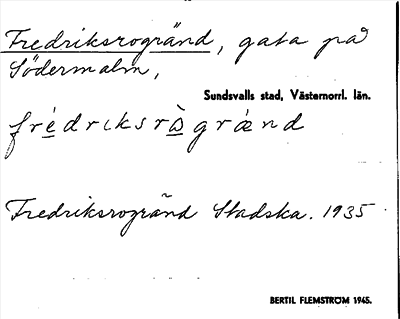 Fredriksrogränd, gata på
Södermalm,
Sundsvalls stad, Västernorrl. län.
frédriksrògrænd
Fredriksrogränd Stadska. 1935
BERTIL FLEMSTRÖM 1945.